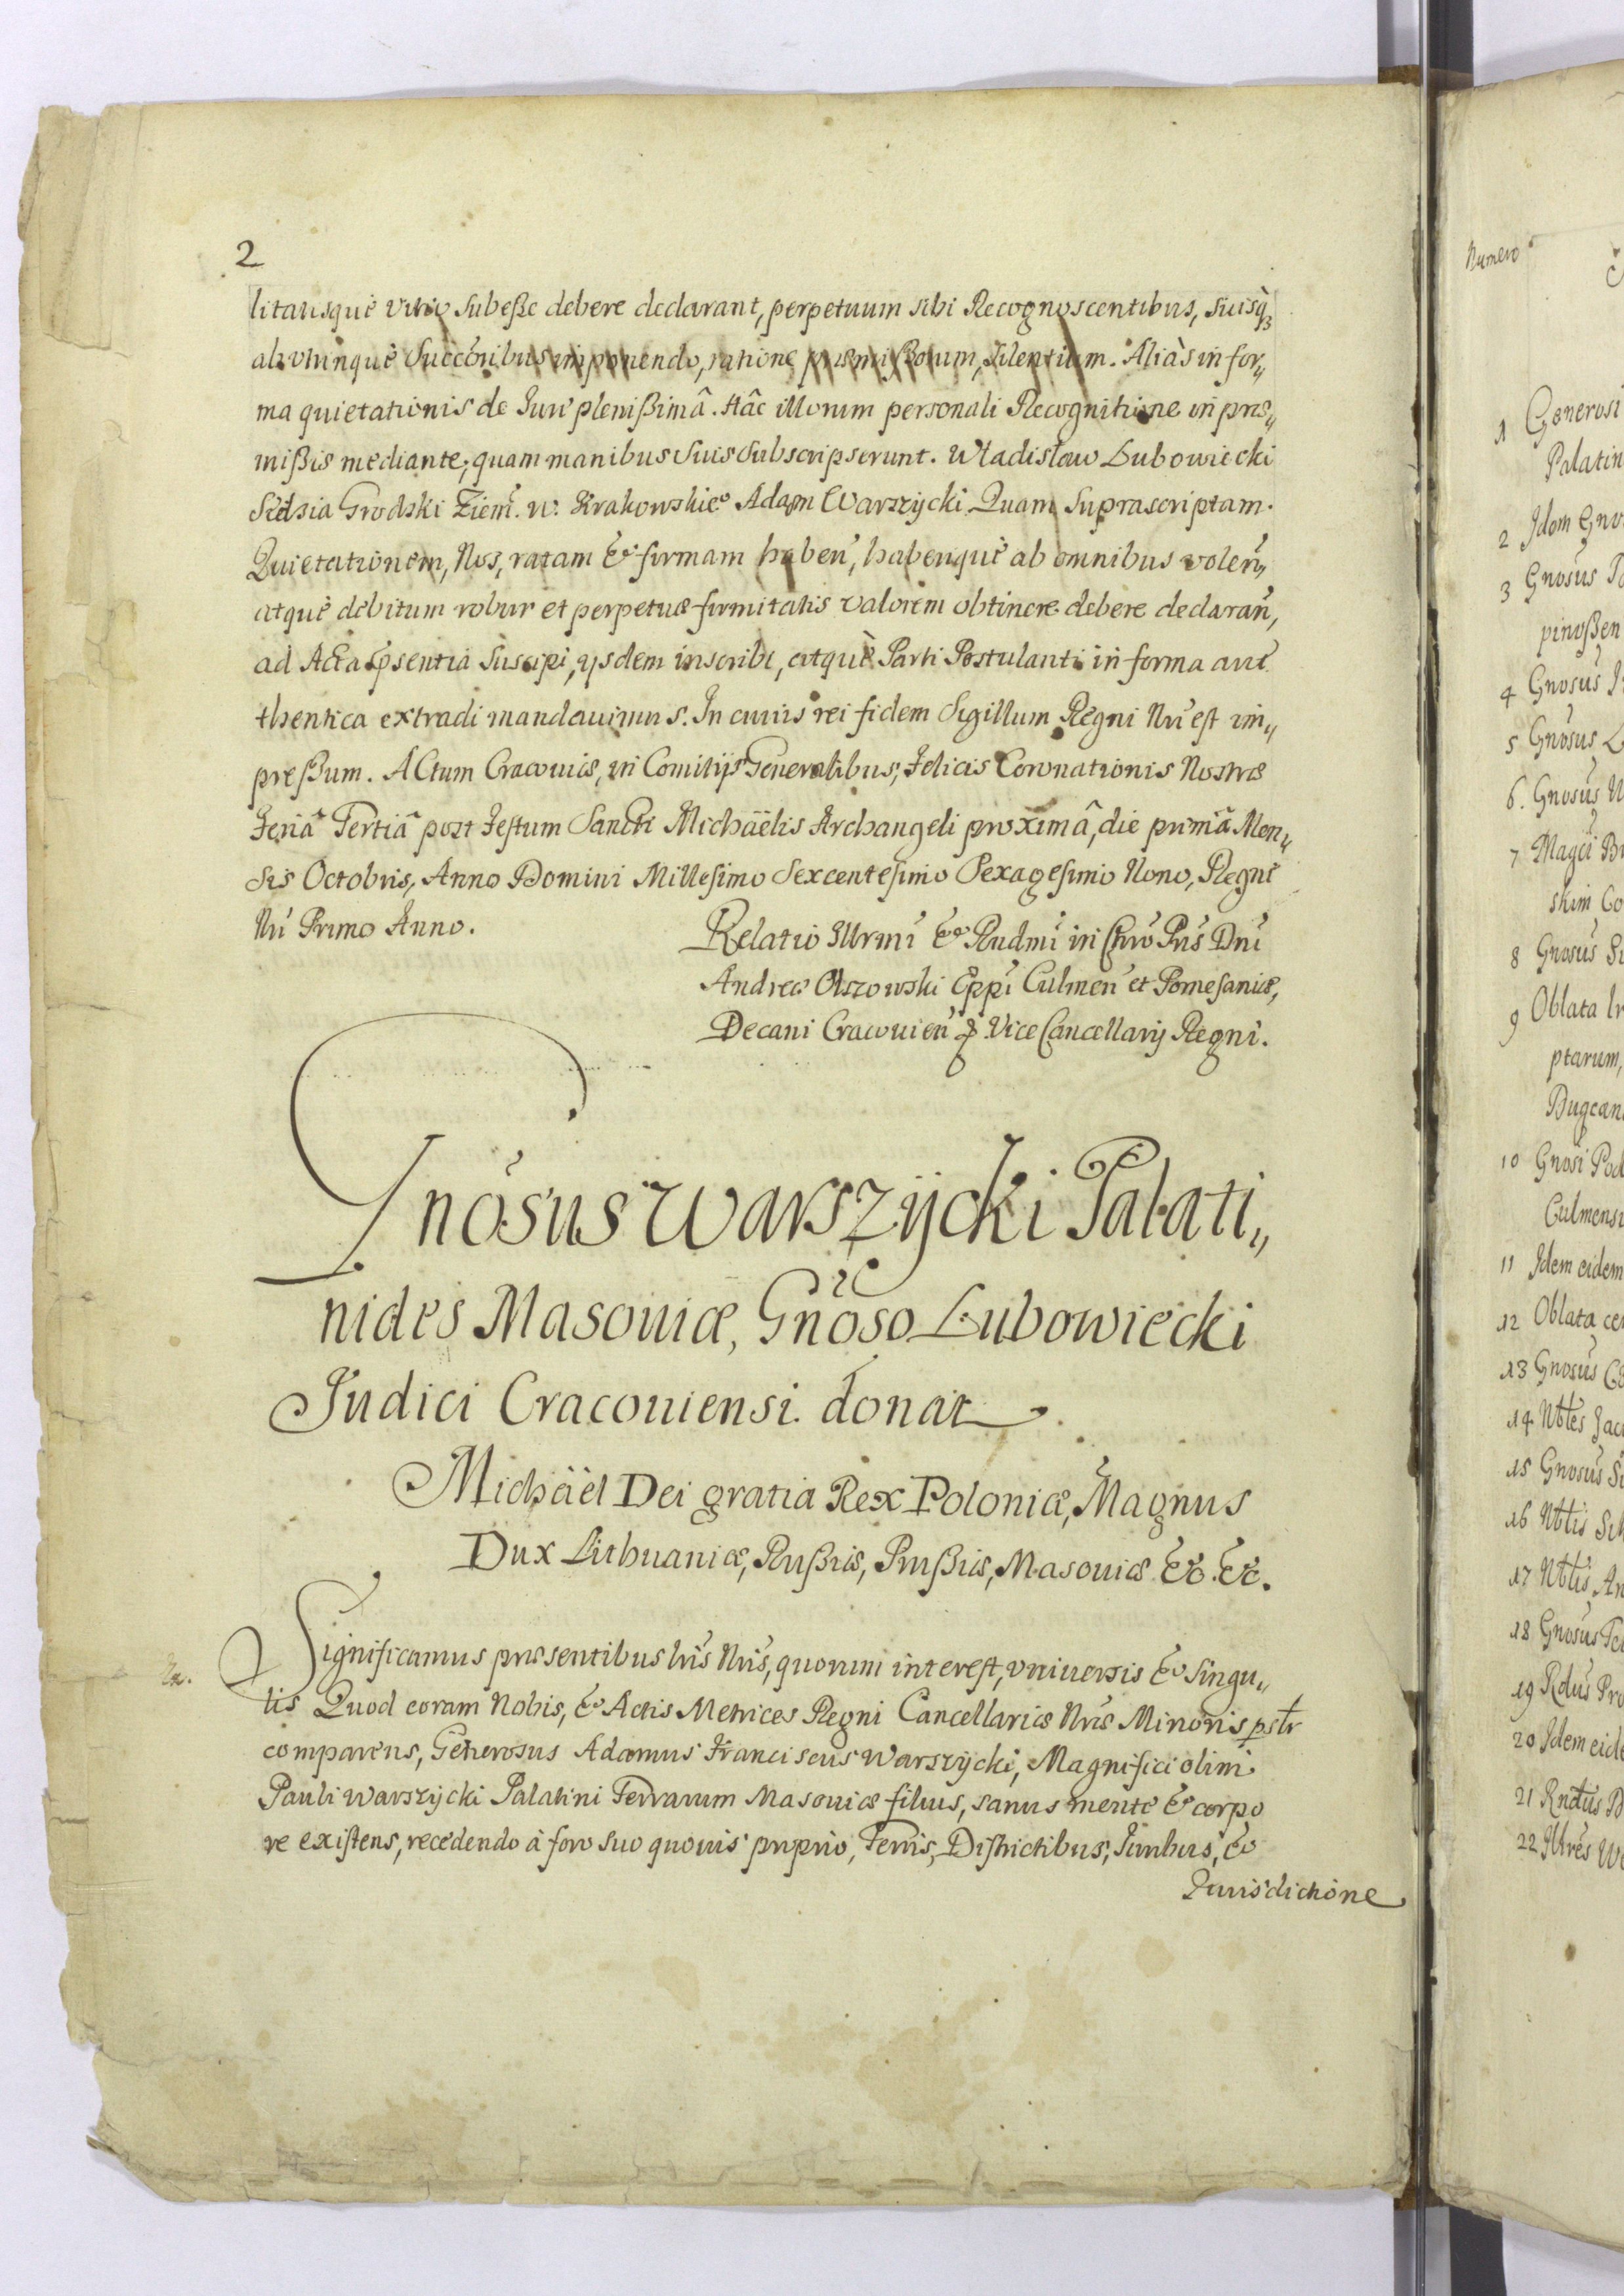 2
litatisquè vitio subeße debere declarant, perpetuum sibi Recognoscentibus, suisq́ꝫ
ab vtrinquè Succoribus imponendo, ratione præmißorum, silentium. Aliàs in for„
ma quietationis de Iure plenißimâ. Hâc illorum personali Recognitione in præ„
mißis mediante, quam manibus suis subscripserunt. Władisław Lubowiecki
Sędsia Grodski Ziem. w. Krakowskieo Adam Warszycki Quam Suprascriptam
Quietationem, Nos, ratam & firmam haben̄, haberiquè ab omnibus volen̄,
atquè debitum robur et perpetuæ firmitatis valorem obtinere debere declaran̄,
ad Acta p̄sentia suscipi, ijsdem inscribi, atquè Parti Postulanti in forma aut
thentica extradi mandauimus. In cuius rei fidem Sigillum Regni Nr̄i est im„
preßum. ACtum Cracouiæ, in Comitijs Generalibus, Felicis Coronationis Nostræ
Feriâ Tertiâ post Festum Sancti Michäëlis Archangeli proximâ, die primâ Men„
sis Octobris, Anno Domini Millesimo Sexcentesimo Sexagesimo Nono, Regni
Nr̄i Primo Anno.
Relatio Illrmi & Rndmi in Chro Pris Dni
Andreæ Olszowski Eppi Culmen̄ et Pomesaniæ,
Decani Cracouien̄ & Vice Cancellarij Regni.
Gnosus Warszÿcki Palati„
nides Masouiæ, Gnoso Lubowiecki
Judici Cracouiensi donat
Michäël Dei gratia Rex Poloniæ, Magnus
Dux Lithuaniæ, Rußiæ, Prußiæ, Masouiæ &c. &c.
Significamus præsentibus lr̄is Nr̄is, quorum interest, vniuersis & singu„
lis Quod coram Nobis, & Actis Metrices Regni Cancellariæ Nr̄æ Minoris pslr
comparens, Generosus Adamus Franciscus Warszÿcki, Magnifici olim
Pauli Warszÿcki Palatini Terrarum Masouiæ filius, sanus mente & corpo
re existens, recedendo à foro suo quouis proprio, Terris, Districtibus, Iuribus, &
Iurisdictione
Numero
1 Generosi
Palatin
2 Idem Gno
3 Gnosus
pinoßen
4 Gnosus
5 Gnosus
6. Gnosus
7 Magci
skim Co
8 Gnosus
9 Oblata
ptarum,
Bugcan
10 Gnosi Pod
Culmens
11 Idem eidem
12 Oblata
13 Gnosus
14 Nbles Jac
15 Gnosus
16 Nblis
17 Nblis An
18 Gnosus
19 Rdus Pro
20 Idem eide
21 Rndus
22 Illres